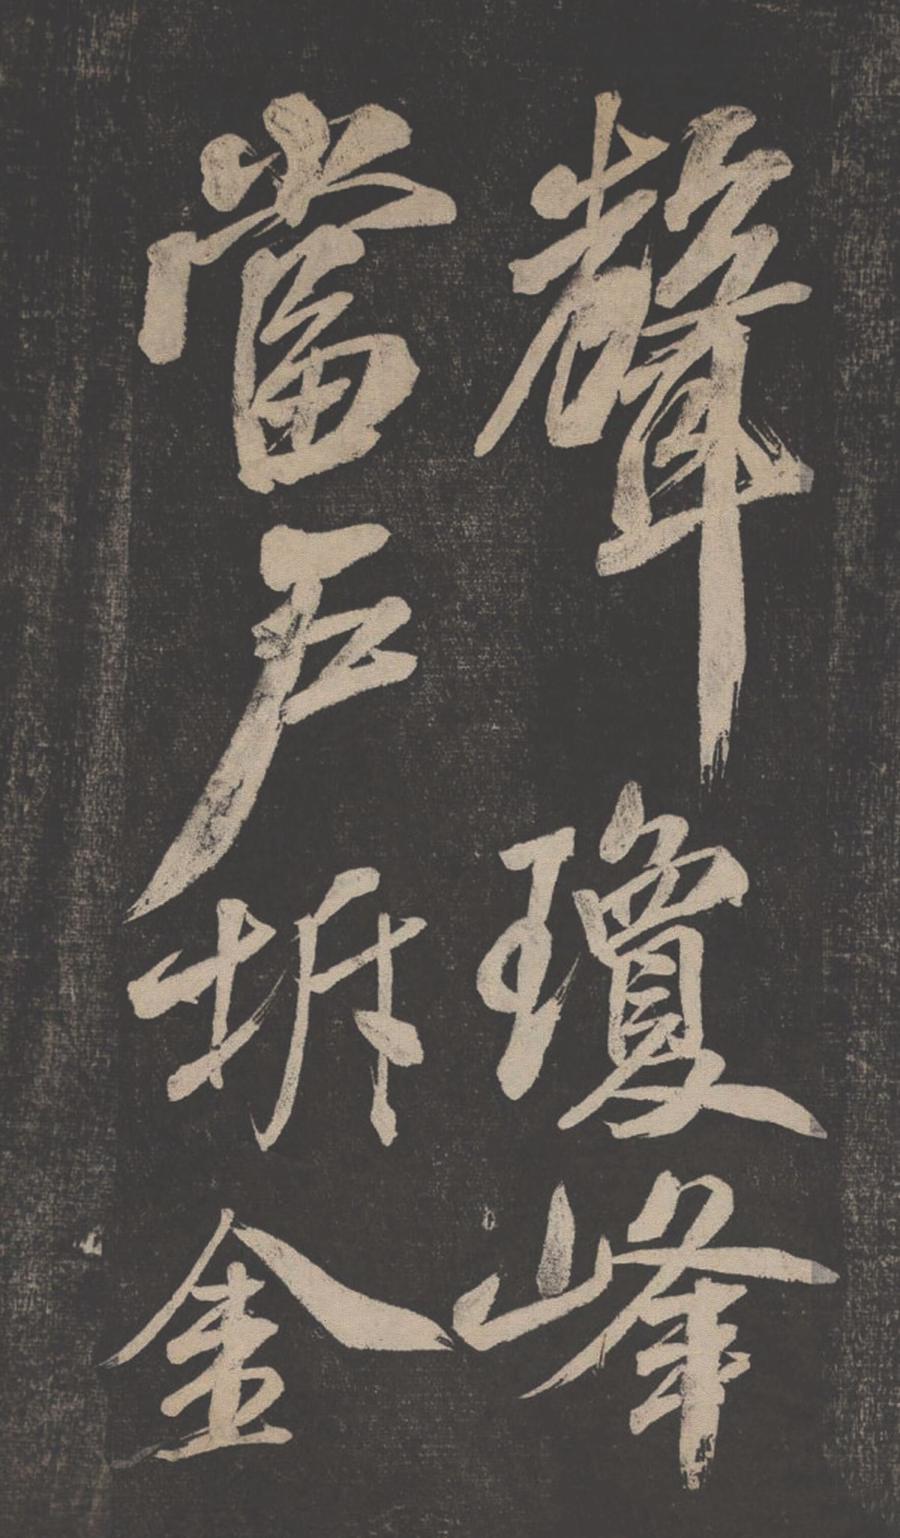 聲瓊峰
當戶拆金